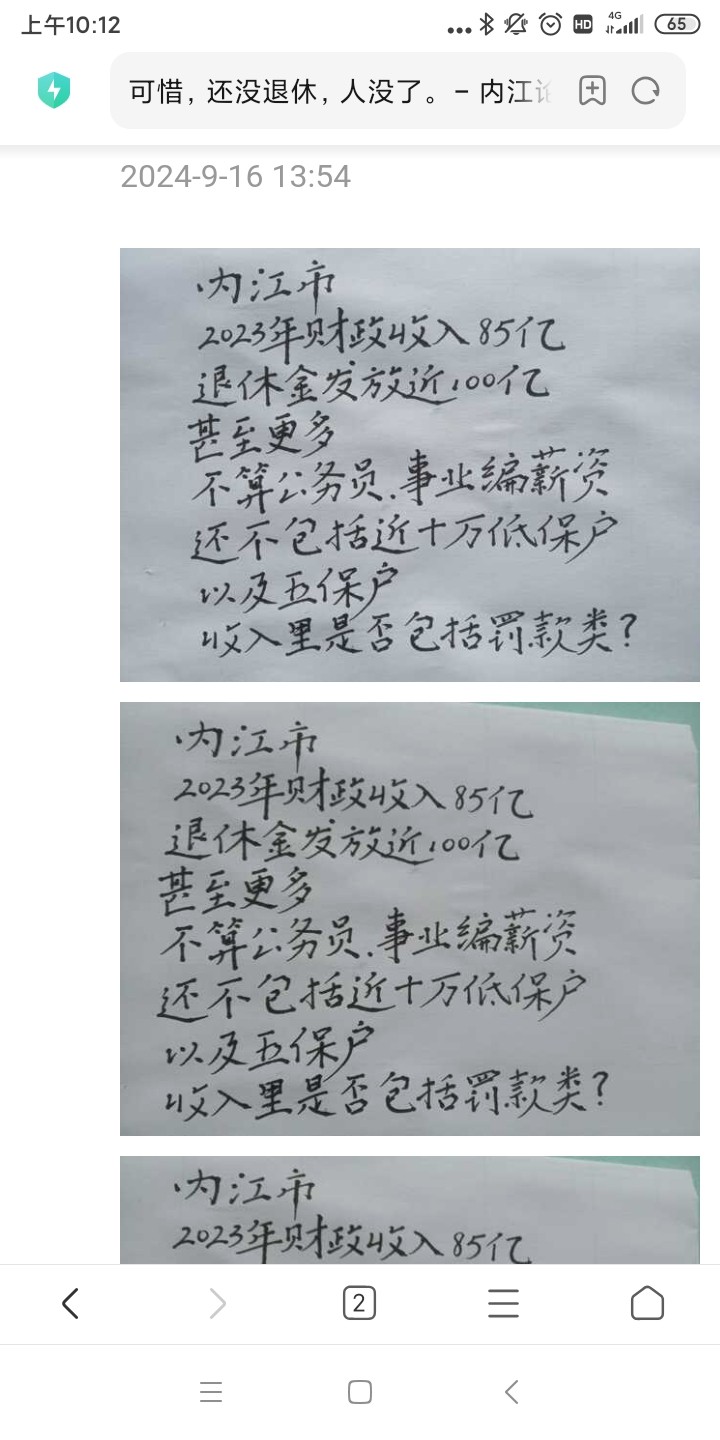 上午10:12
4G
HD
65
可惜，还没退休，人没了。- 内江论
2024-9-16 13:54
内江市
2023年财政收入85亿
退休金发放近100亿
甚至更多
不算公务员.事业编薪资
还不包括近十万低保户
以及五保户
收入里是否包括罚款类?
内江市
2023年财政收入85亿
退休金发放近100亿
甚至更多
不算公务员.事业编薪资
还不包括近十万低保户
以及五保户
收入里是否包括罚款类?
内江市
2023年财政收入85亿
2